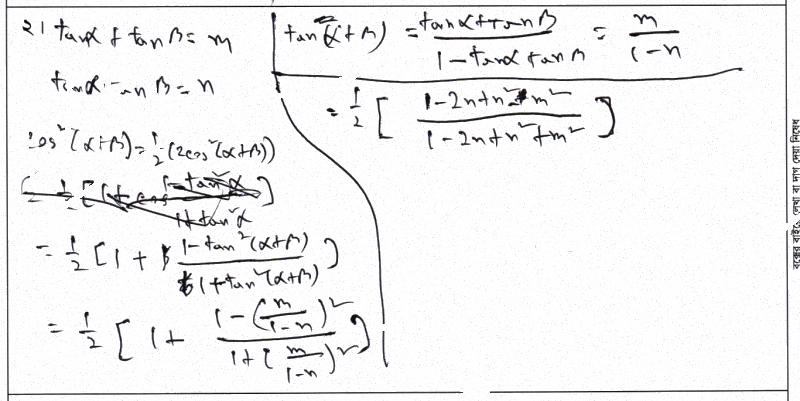 21 tanα + tanβ = m
tanα · tanβ = n
cos²(α+β) = 1/2 (2cos²(α+β))
= 1/2 [1 + (1 - tan²(α+β))/(1 + tan²(α+β))]
= 1/2 [1 + (1 - (m/(1-n))²)/(1 + (m/(1-n))²)]
tan(α+β) = (tanα + tanβ)/(1 - tanα tanβ) = m/(1-n)
= 1/2 [(1-2n+n²-m²)/(1-2n+n²+m²)]
বক্সের বাইরে লেখা বা দাগ দেয়া নিষেধ